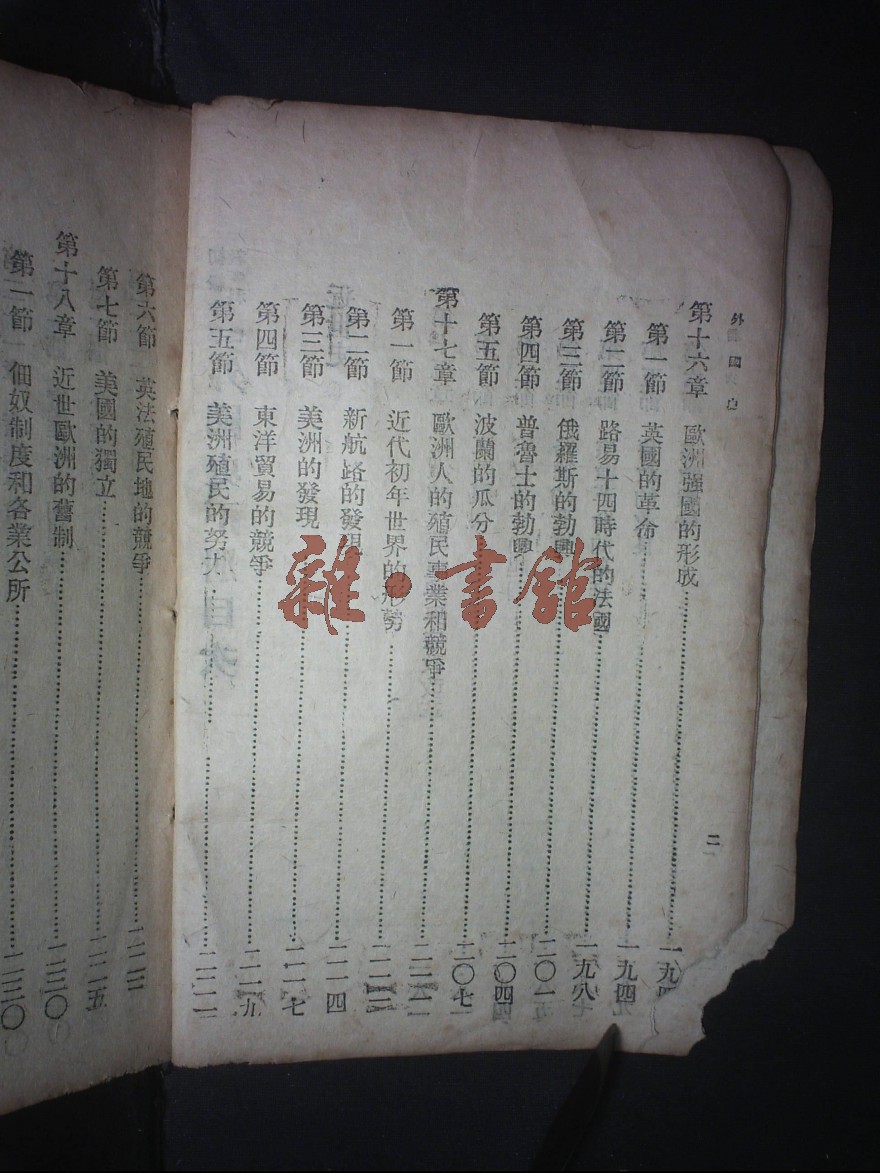 外國史
二
第十六章 歐洲強國的形成……一九
第一節 英國的革命……
第二節 路易十四時代的法國……一九四
第三節 俄羅斯的勃興……一九八
第四節 普魯士的勃興……二〇一
第五節 波蘭的瓜分……二〇四
第十七章 歐洲人的殖民事業和競爭……二〇七
第一節 近代初年世界的形勢
第二節 新航路的發現
第三節 美洲的發現……二一四
第四節 東洋貿易的競爭……二一七
第五節 美洲殖民的努力……二一九
第六節 英法殖民地的競爭
第七節 美國的獨立……二二五
第十八章 近世歐洲的舊制……二三〇
第一節 佃奴制度和各業公所……二三〇
雜·書館